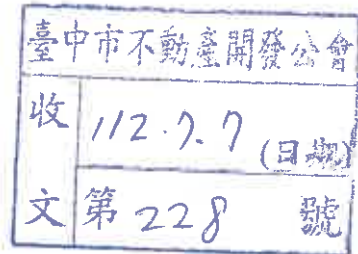 臺中市不動產開發公會
收文
112.7.7 (日期)
第 228 號